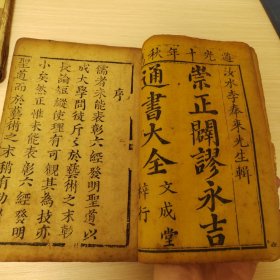 道光十年秋
汝水李奉來先生輯
崇正闢謬永吉
通書大全
文成堂
梓行
序
儒者未能表彰六經發明聖道以
成大學問徒斤斤於藝術之末
長論短縱使理有可觀其為技亦
小矣然正惟未能表彰六經發明
聖道而於藝術之末稍有